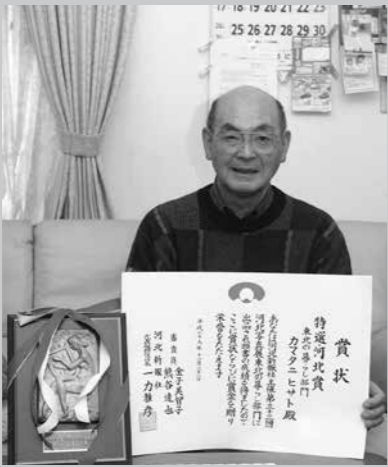 17 18 19 20 21 22 23
25 26 27 28 29 30
賞状
特選河北賞
東北の暮らし部門
カマタニ ヒサト 殿
あなたは河北新報社主催第三十三回
河北写真展東北の暮らし部門に
頭書の成績を得ましたので
ここに賞状ならびに賞金を贈り
栄誉をたたえます
平成二十九年
審査員 金子美智子
熊谷達也
河北新報社
代表取締役社長 一力雅彦